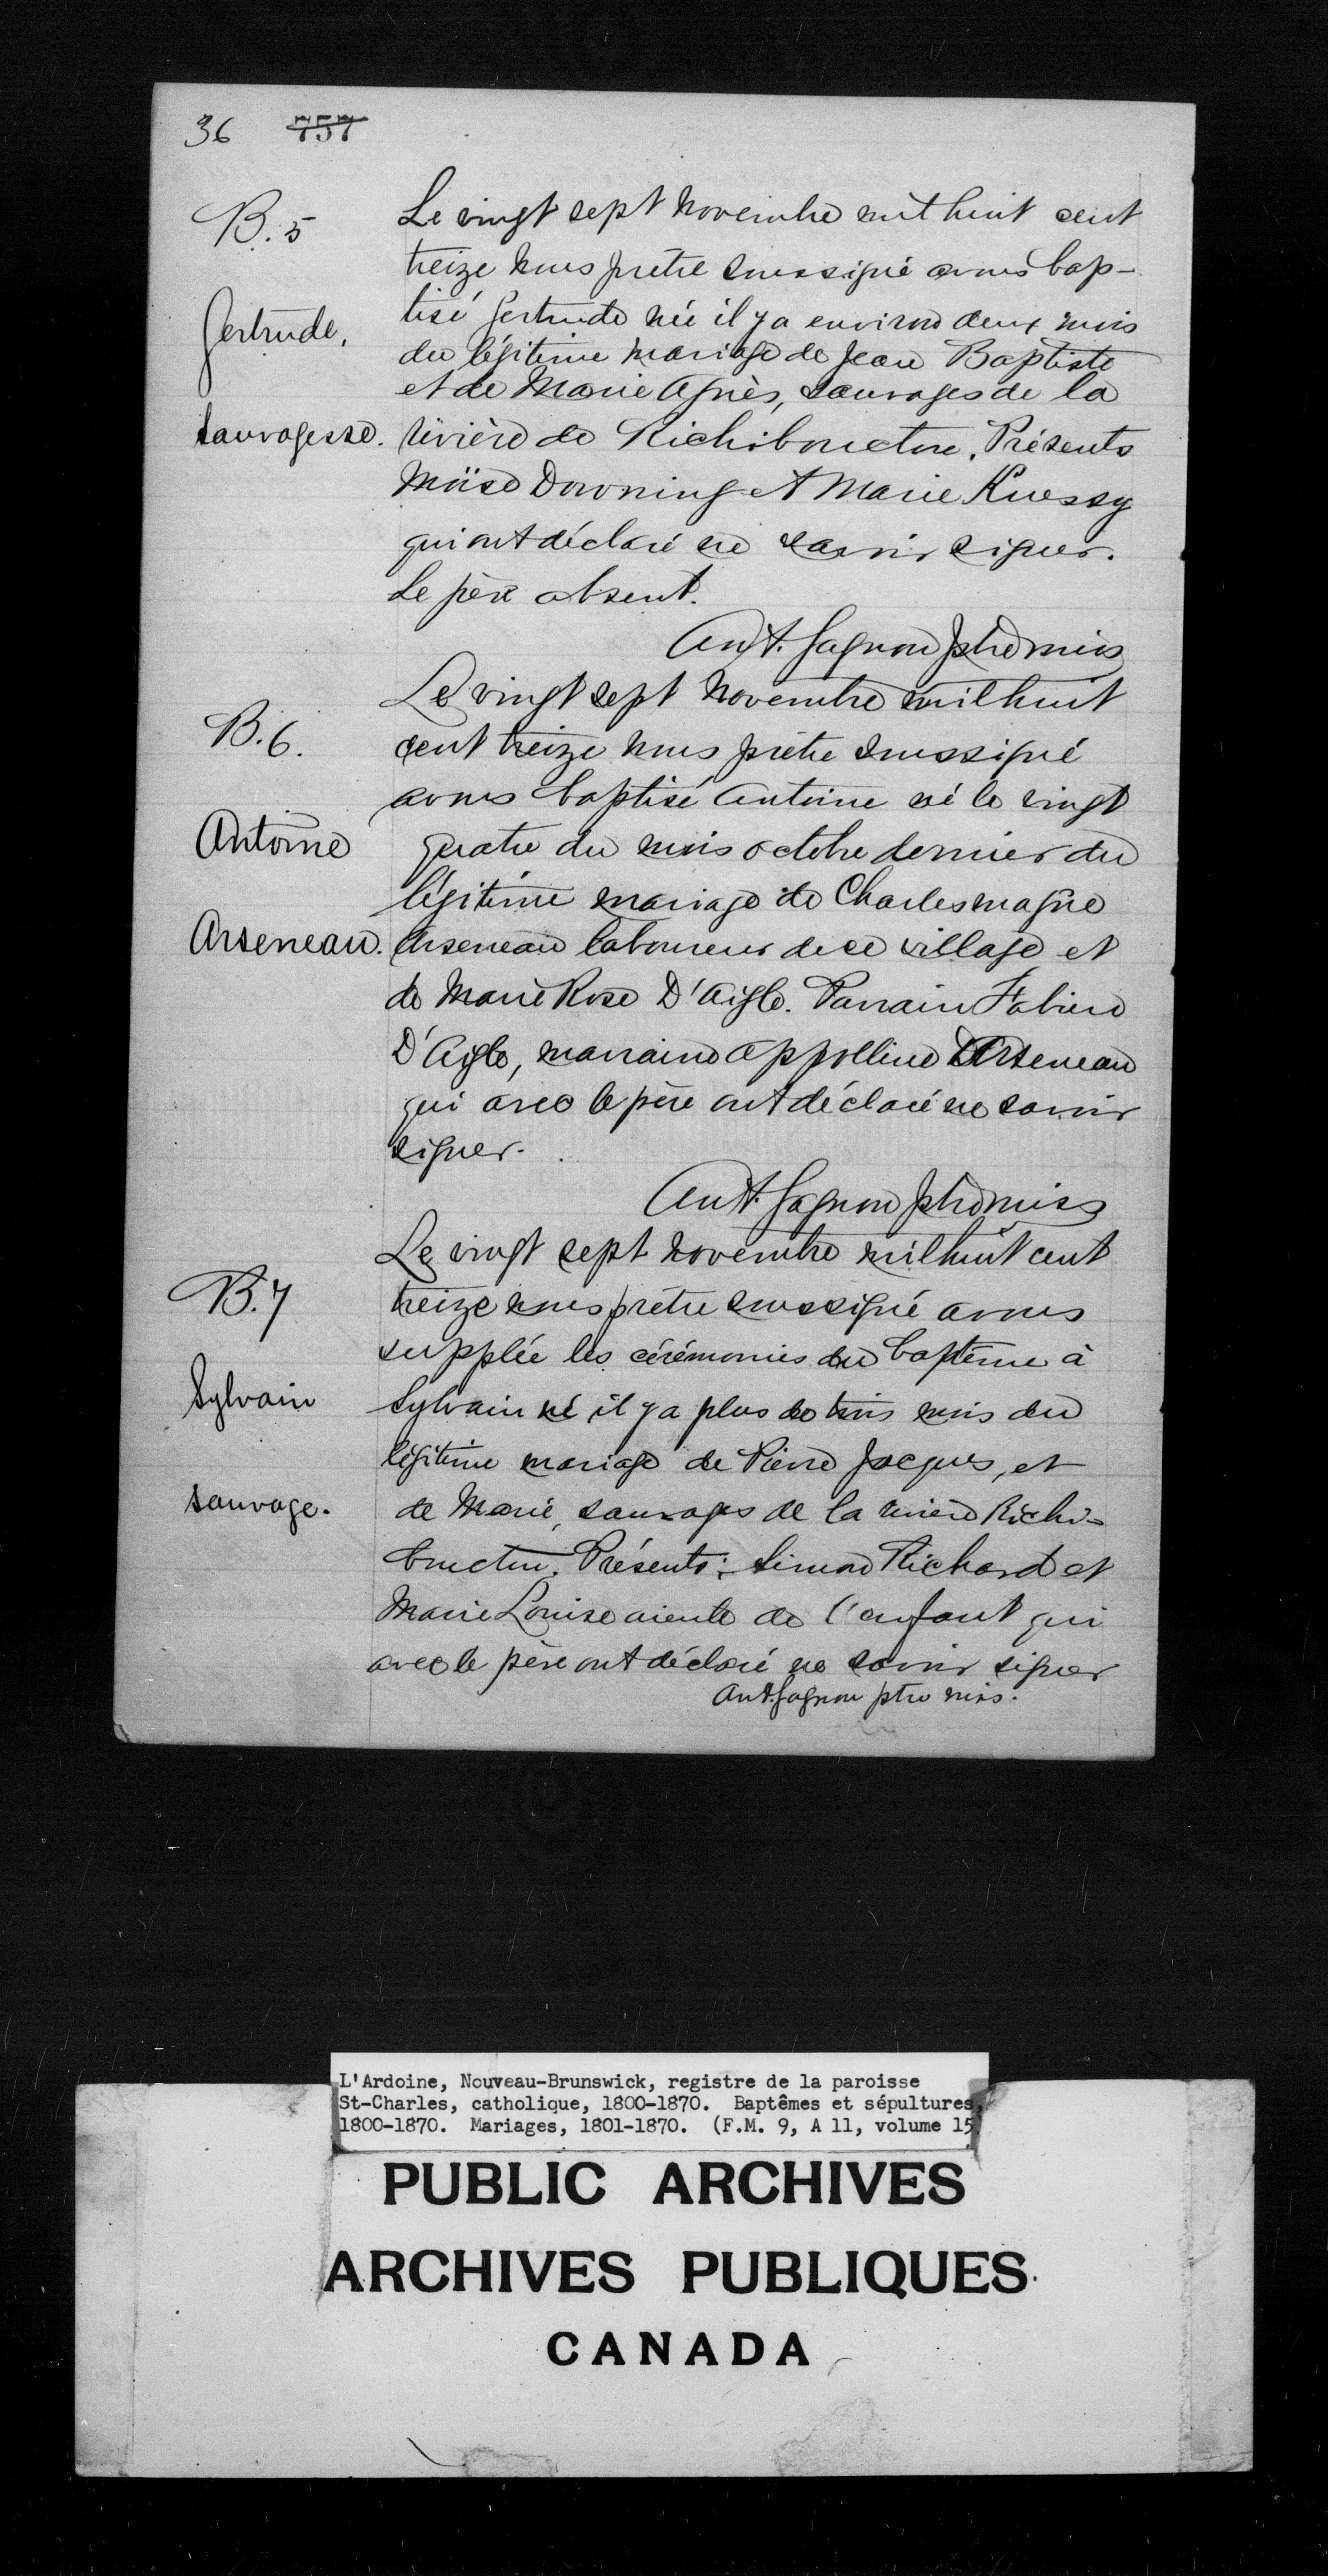 36 757
B. 5
Le vingt sept Novembre mil huit cent
treize nous prêtre soussigné avons bap-
Gertrude,
tisé Gertrude née il y a environ deux mois
du légitime mariage de Jean Baptiste
et de Marie Agnès, sauvages de la
sauvagesse.
rivière de Richibouctou. Présents
Moïse Downing et Marie
qui ont déclaré ne savoir signer.
Le père absent.
Ant. Gagnon ptre miss
B. 6.
Le vingt sept Novembre mil huit
cent treize nous prêtre soussigné
avons baptisé Antoine né le vingt
Antoine
quatre du mois octobre dernier du
légitime mariage de Charlesmagne
Arseneau.
Arseneau laboureur de ce village et
de Marie Rose D'Aigle. Parrain Fabien
D'Aigle, marraine Appolline Arseneau
qui avec le père ont déclaré ne savoir
signer.
Ant. Gagnon ptre miss
B. 7
Le vingt sept novembre mil huit cent
treize nous prêtre soussigné avons
supplée les cérémonies du baptême à
Sylvain
Sylvain né il y a plus de trois mois du
légitime mariage de Pierre Jacques, et
sauvage.
de Marie, sauvages de la rivière Richi-
bouctou. Présents: Simon Richard et
Marie Louise aieule de l'enfant qui
avec le père ont déclaré ne savoir signer
Ant. Gagnon ptre mis.
L'Ardoine, Nouveau-Brunswick, registre de la paroisse
St-Charles, catholique, 1800-1870. Baptêmes et sépultures,
1800-1870. Mariages, 1801-1870. (F.M. 9, A 11, volume 15
PUBLIC ARCHIVES
ARCHIVES PUBLIQUES
CANADA